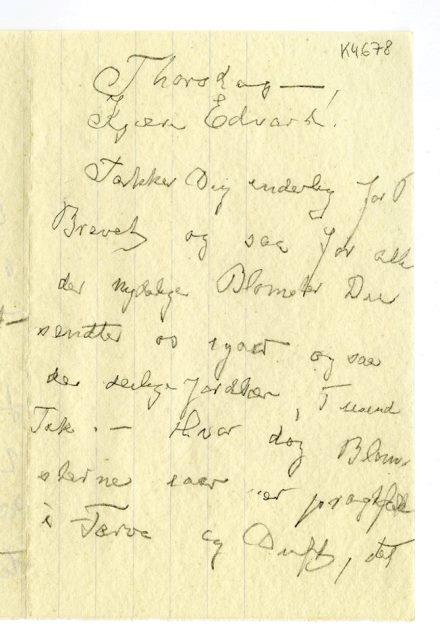 K4678
Thorsdag —
Kjære Edvard!
Takker Dig inderlig for
Brevet og saa for alle
de nydelige Blomster Du
sendte os igaar og saa
de deilige Jordbær, Tusend
Tak. — Hvor dog Blom-
sterne iaar er pragtfulle
i Farve og Duft, det